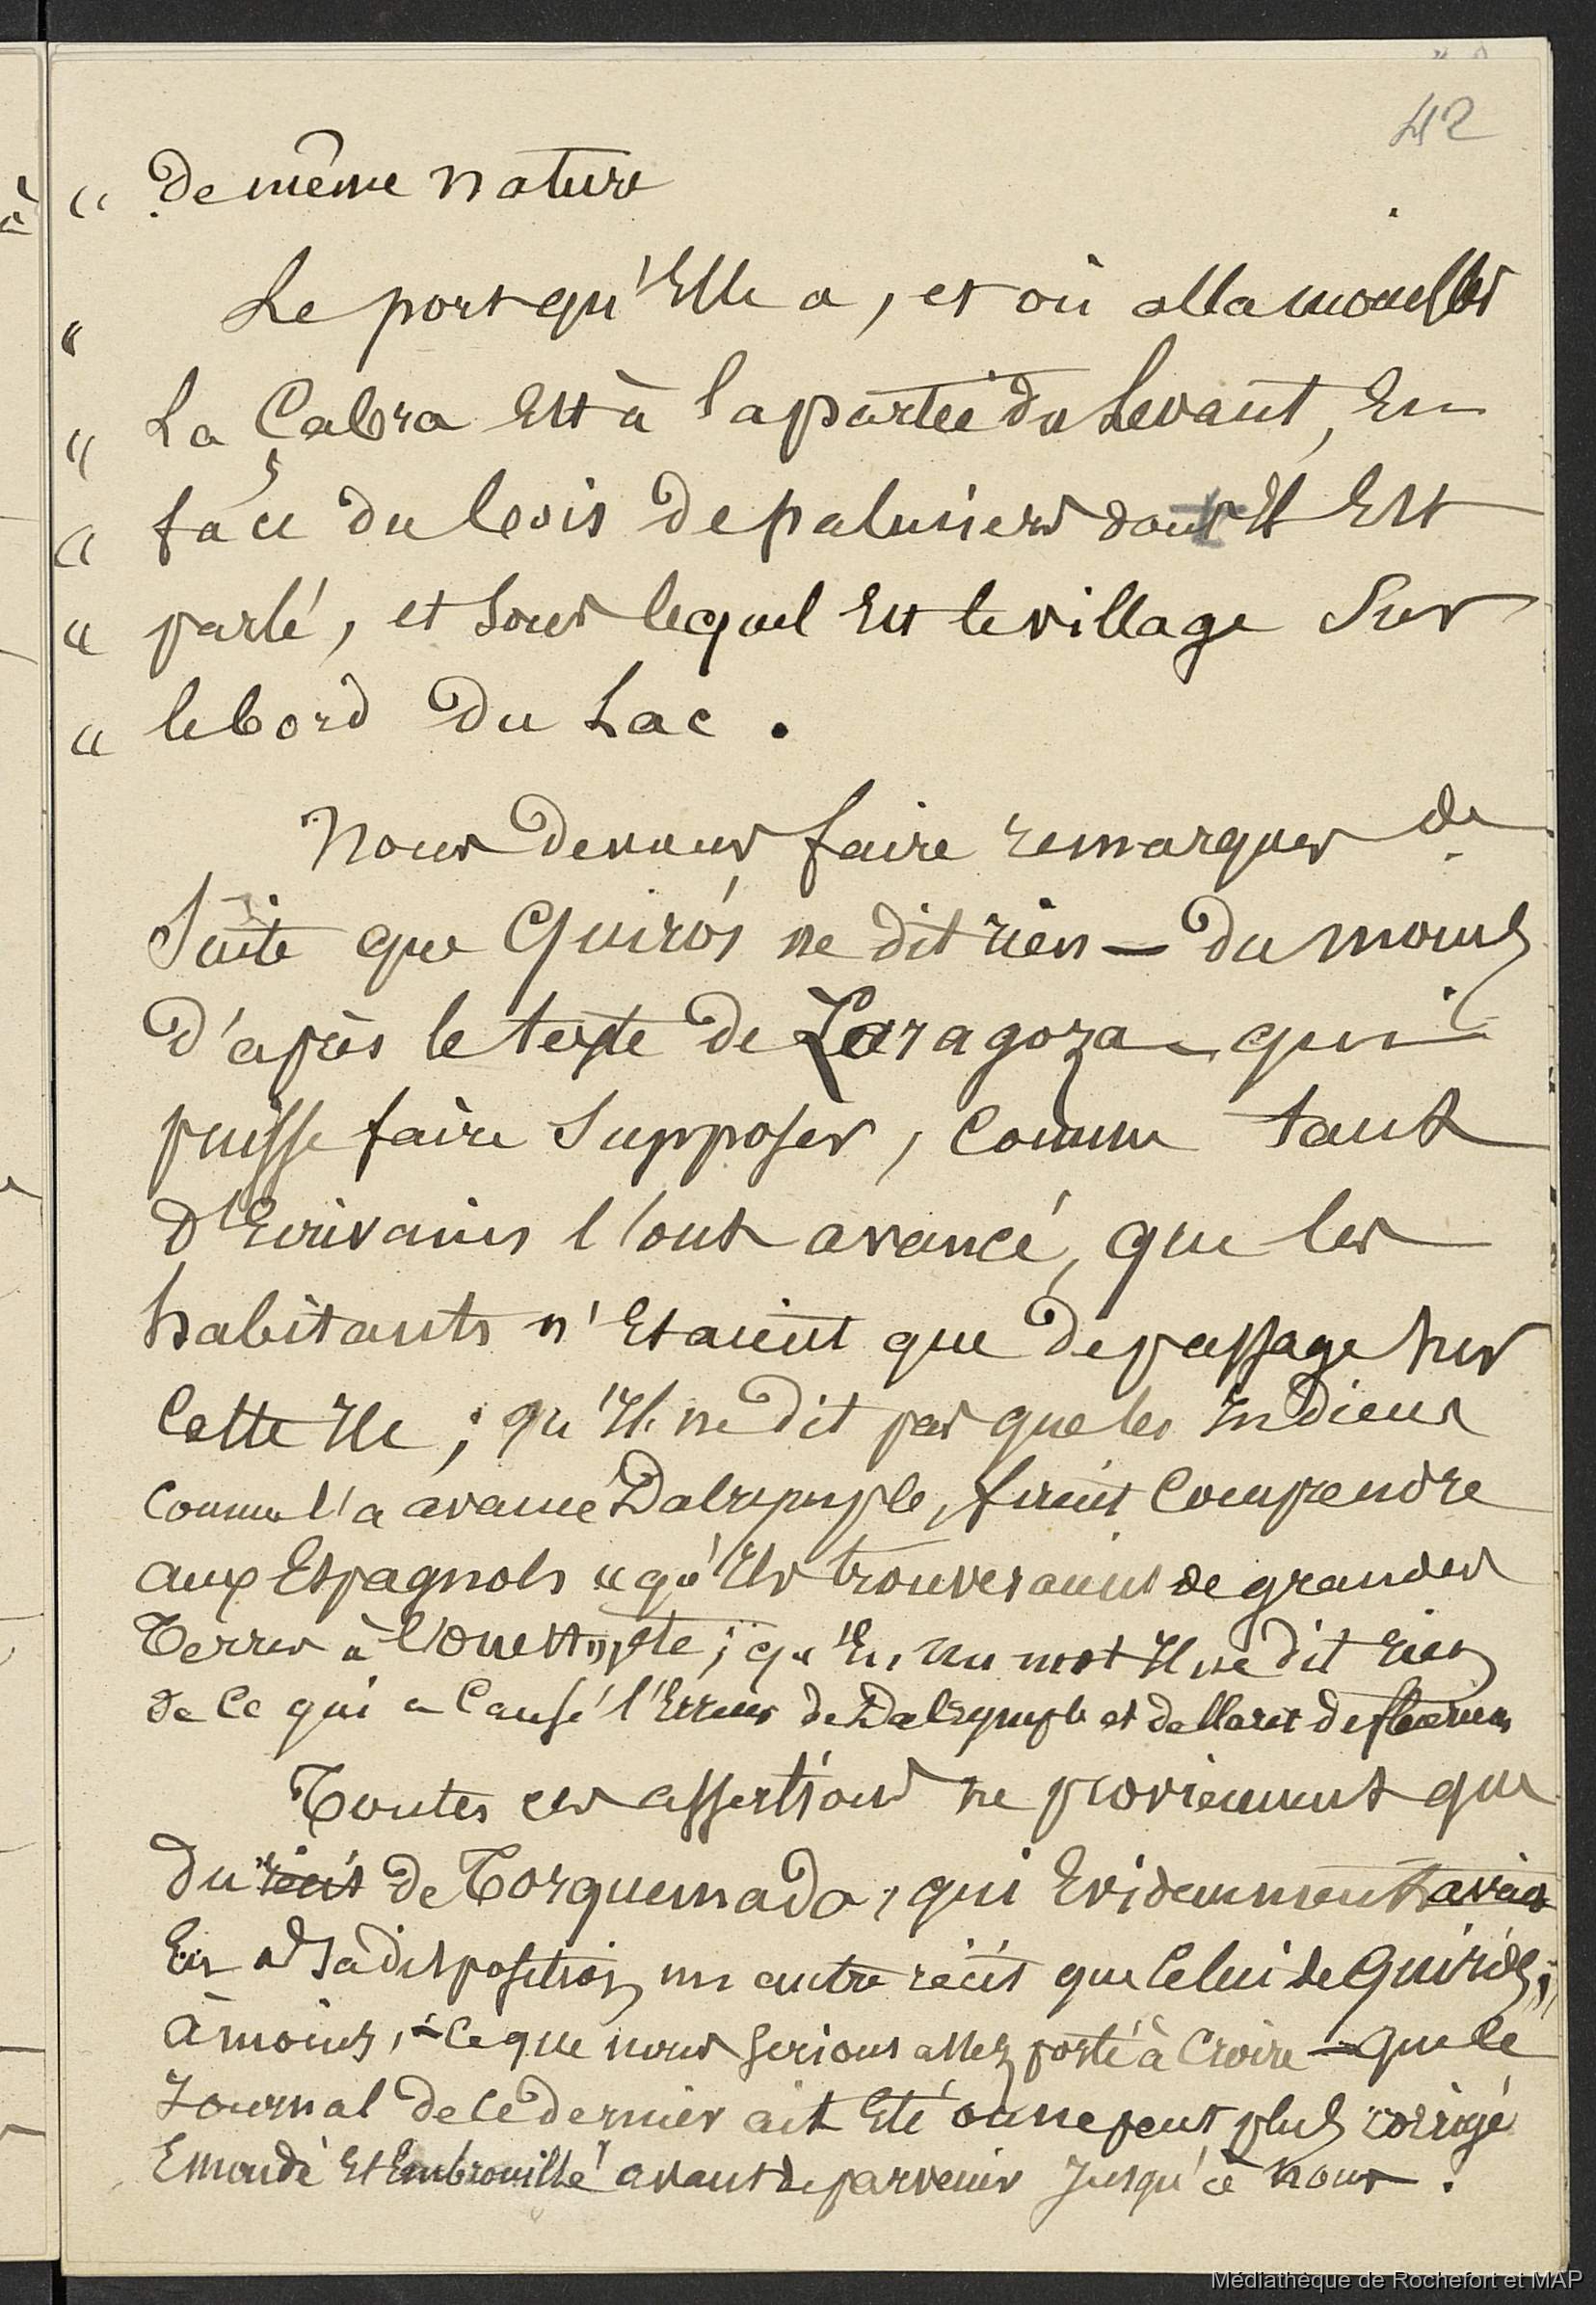 42
" de même nature
" Le port qu'Elle a, et où alla mouiller
" La Cabra Est à la partie du Levant, En
" face du bois de palmiers dont Il Est
" parlé, et sous lequel Est le village sur
" le bord du Lac .
Nous devons faire remarquer de
Suite que Quirós ne dit rien — du moins
d'après le texte de Zaragoza — qui
puisse faire supposer, comme tant
d'Ecrivains l'ont avancé, que les
habitants n'Etaient que de passage sur
cette Ile ; qu'Il ne dit pas que les Indiens
comme l'a avancé Dalrymple, firent comprendre
aux Espagnols " qu'Ils trouveraient de grandes
Terres à l'ouest " ; qu'En un mot Il ne dit rien
de ce qui a causé l'Erreur de Dalrymple et de
Toutes ces assertions ne proviennent que
du récit de Torquemada, qui Evidemment avait
Eu à sa disposition un autre récit que celui de Quirós ;
à moins, — ce que nous serions assez porté à croire — que le
Journal de ce dernier ait Eté on ne peut plus corrigé
Emondé Et Embrouillé avant de parvenir Jusqu'à nous .
Médiathèque de Rochefort et MAP